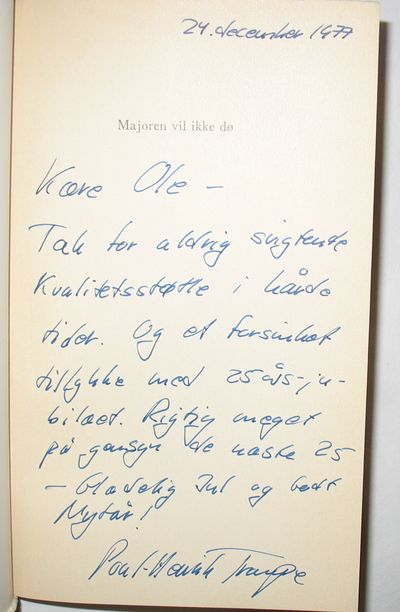 24. december 1977
Majoren vil ikke dø
Kære Ole –
Tak for aldrig svigtende
kvalitetsstøtte i hårde
tider. Og et forsinket
tillykke med 25 års-ju-
bilæet. Rigtig meget
på gensyn de næste 25
– Glædelig Jul og godt
Nytår!
Poul-Henrik Trampe